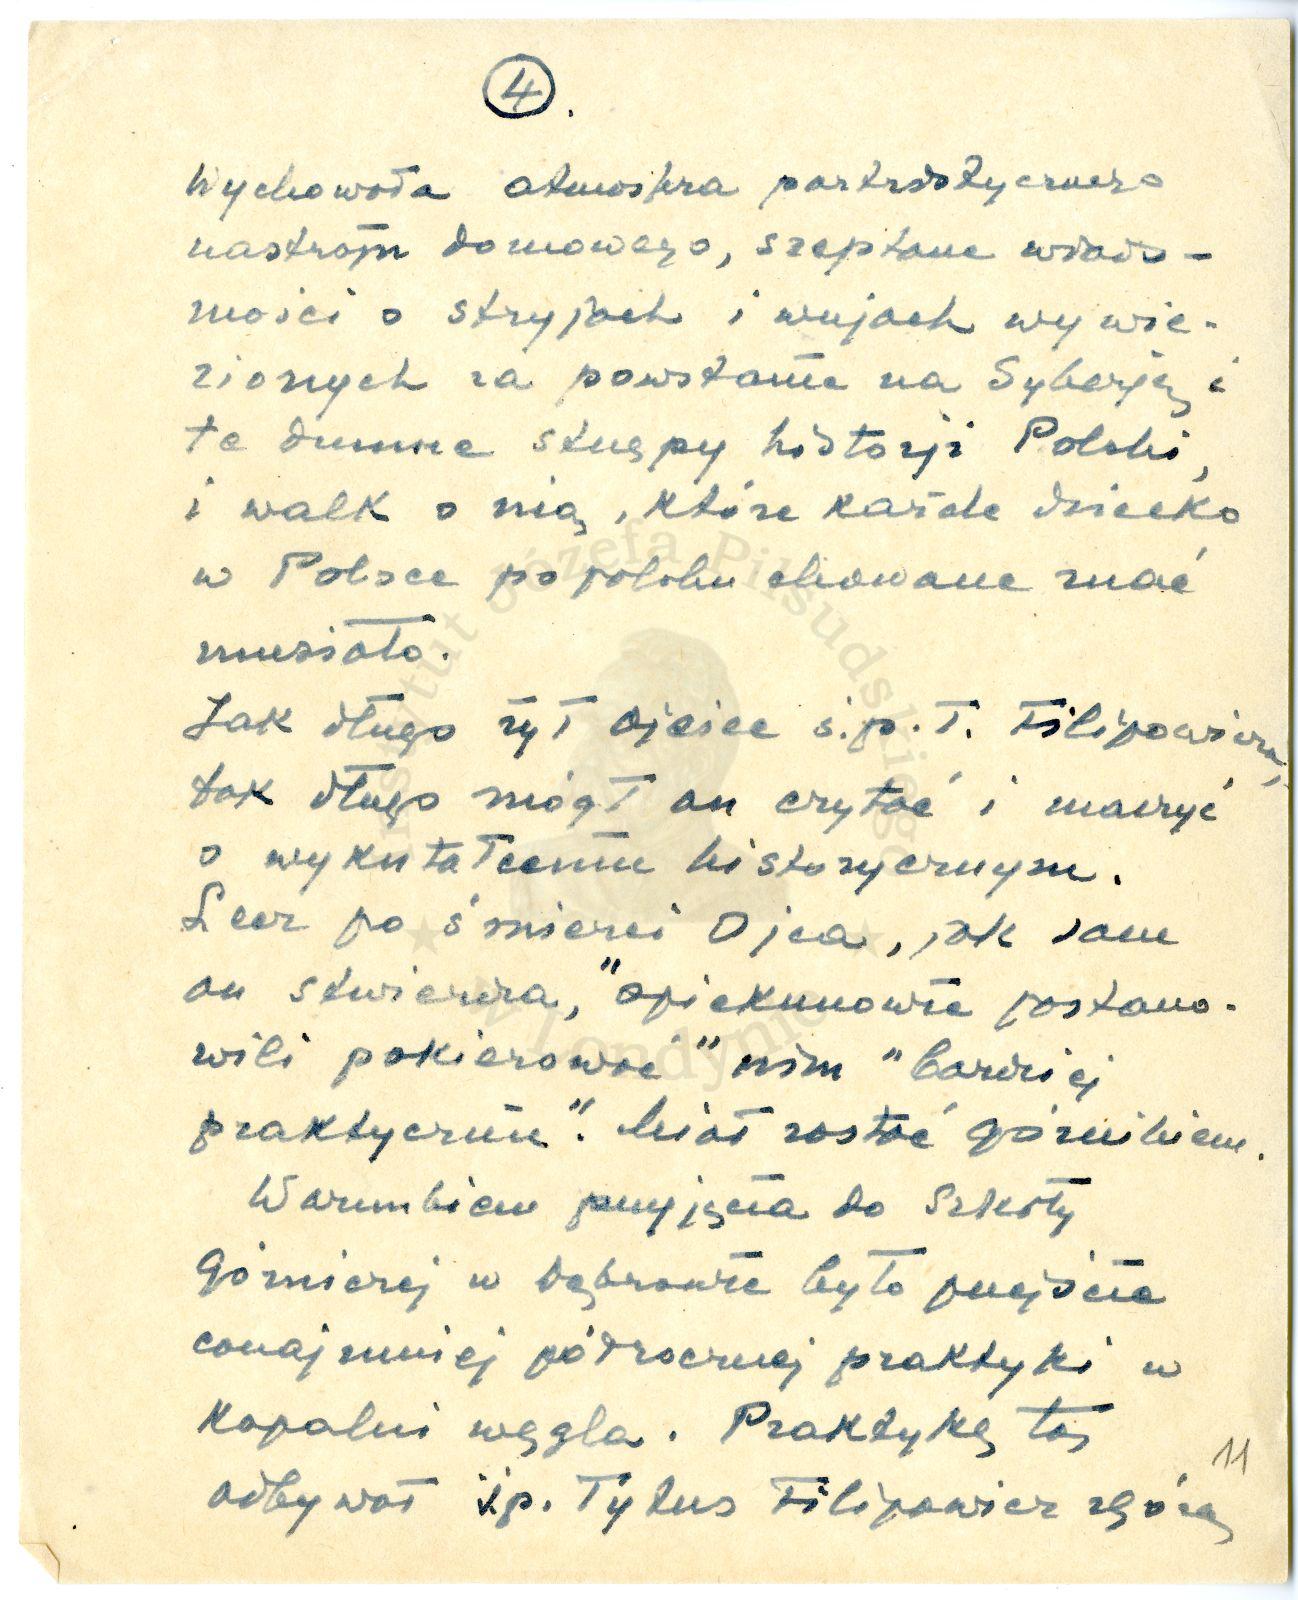 4.
Wychowała atmosfera patriotycznego
nastroju domowego, szeptane wiado-
mości o stryjach i wujach wywie-
zionych za powstanie na Syberję i
te dumne stuępy historji Polski,
i walk o nią, które każde dziecko
w Polsce po polsku chowane znać
musiało.
Jak długo żył Ojciec ś.p. T. Filipowicza,
tak długo mógł on czytać i marzyć
o wykształceniu historycznym.
Lecz po śmierci Ojca, jak sam
on stwierdza, "opiekunowie postano-
wili pokierować" nim "bardziej
praktycznie". Miał zostać górnikiem.
Warunkiem przyjęcia do Szkoły
Górniczej w Dąbrowie było przejście
conajmniej półrocznej praktyki w
kopalni węgla. Praktykę tę
odbywał ś.p. Tytus Filipowicz zgórą
11
Instytut Józefa Piłsudskiego
w Londynie